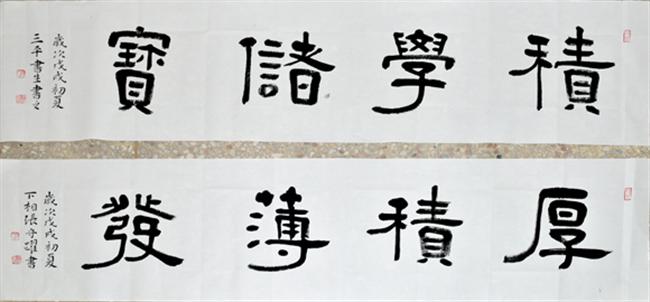 積學儲寶
歲次戊戌初夏
三平書生書之
厚積薄發
歲次戊戌初夏
下相張守躍書